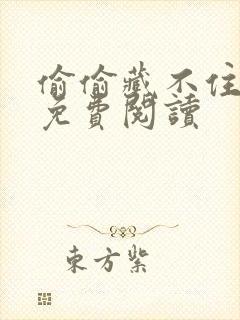 偷偷藏不住
免費閱讀
東方紫